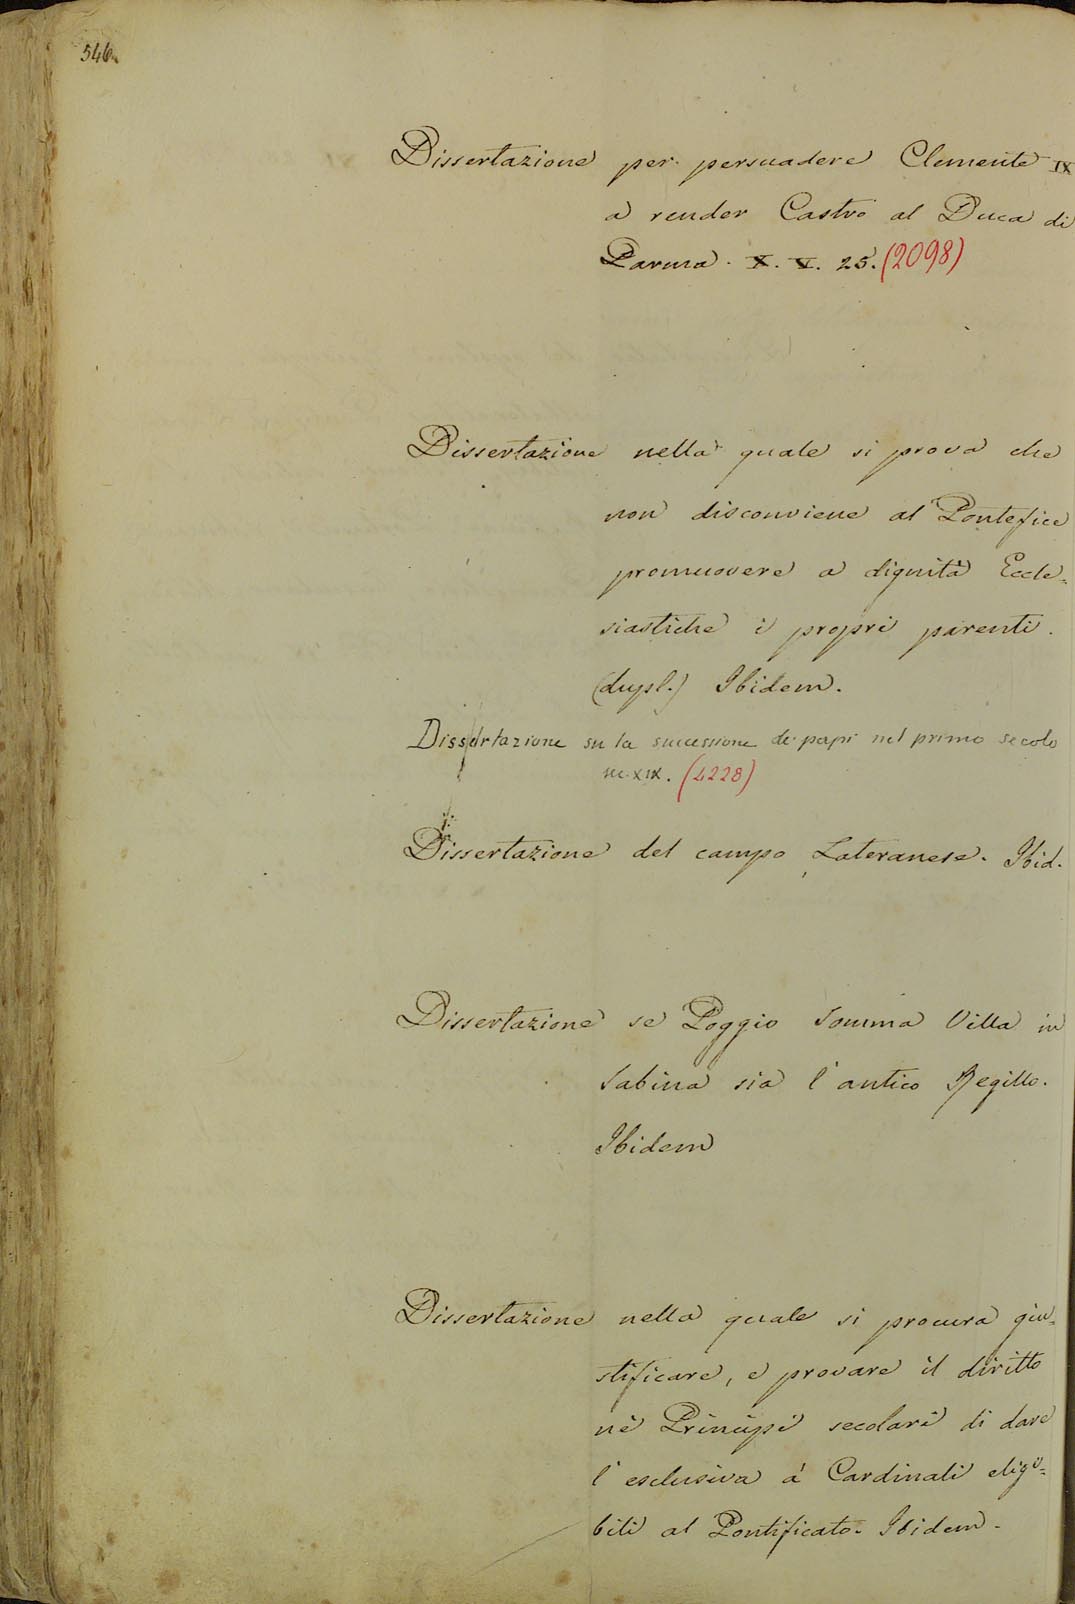 546.
Dissertazione per persuadere Clemente IX
a render Castro al Duca di
Parma. X. V. 25. (2098)
Dissertazione nella quale si prova che
non disconviene al Pontefice
promuovere a dignità Eccle=
siastiche i propri parenti.
(dupl.) Ibidem.
Dissertazione su la successione de papi nel primo secolo
XIX. (4228)
Dissertazione del campo Lateranese. Ibid.
Dissertazione se Poggio Somma Villa in
Sabina sia l'antico Regillo.
Ibidem
Dissertazione nella quale si procura giu=
stificare, e provare il diritto
nè Principi secolari di dare
l'esclusiva à Cardinali eligi=
bili al Pontificato. Ibidem.